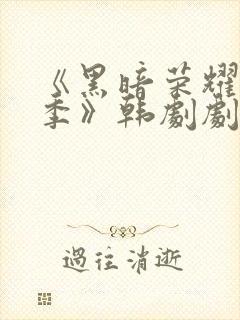 《黑暗荣耀
季》韩剧剧
过往消逝